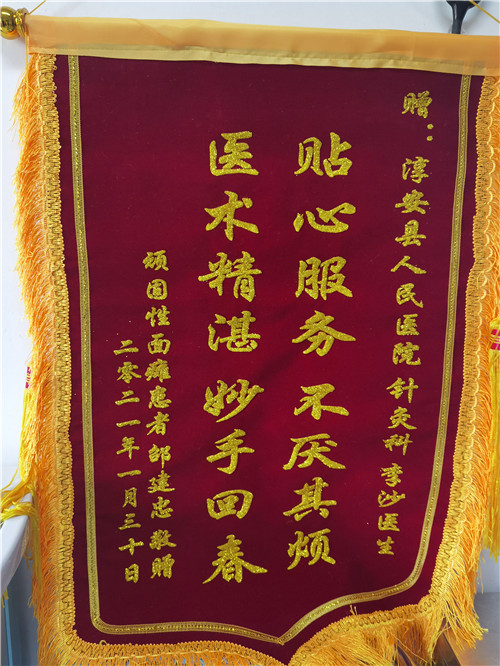 赠：淳安县人民医院 针灸科 李沙医生
贴心服务 不厌其烦
医术精湛 妙手回春
顽固性面瘫患者邹建忠敬赠
二零二一年一月三十日